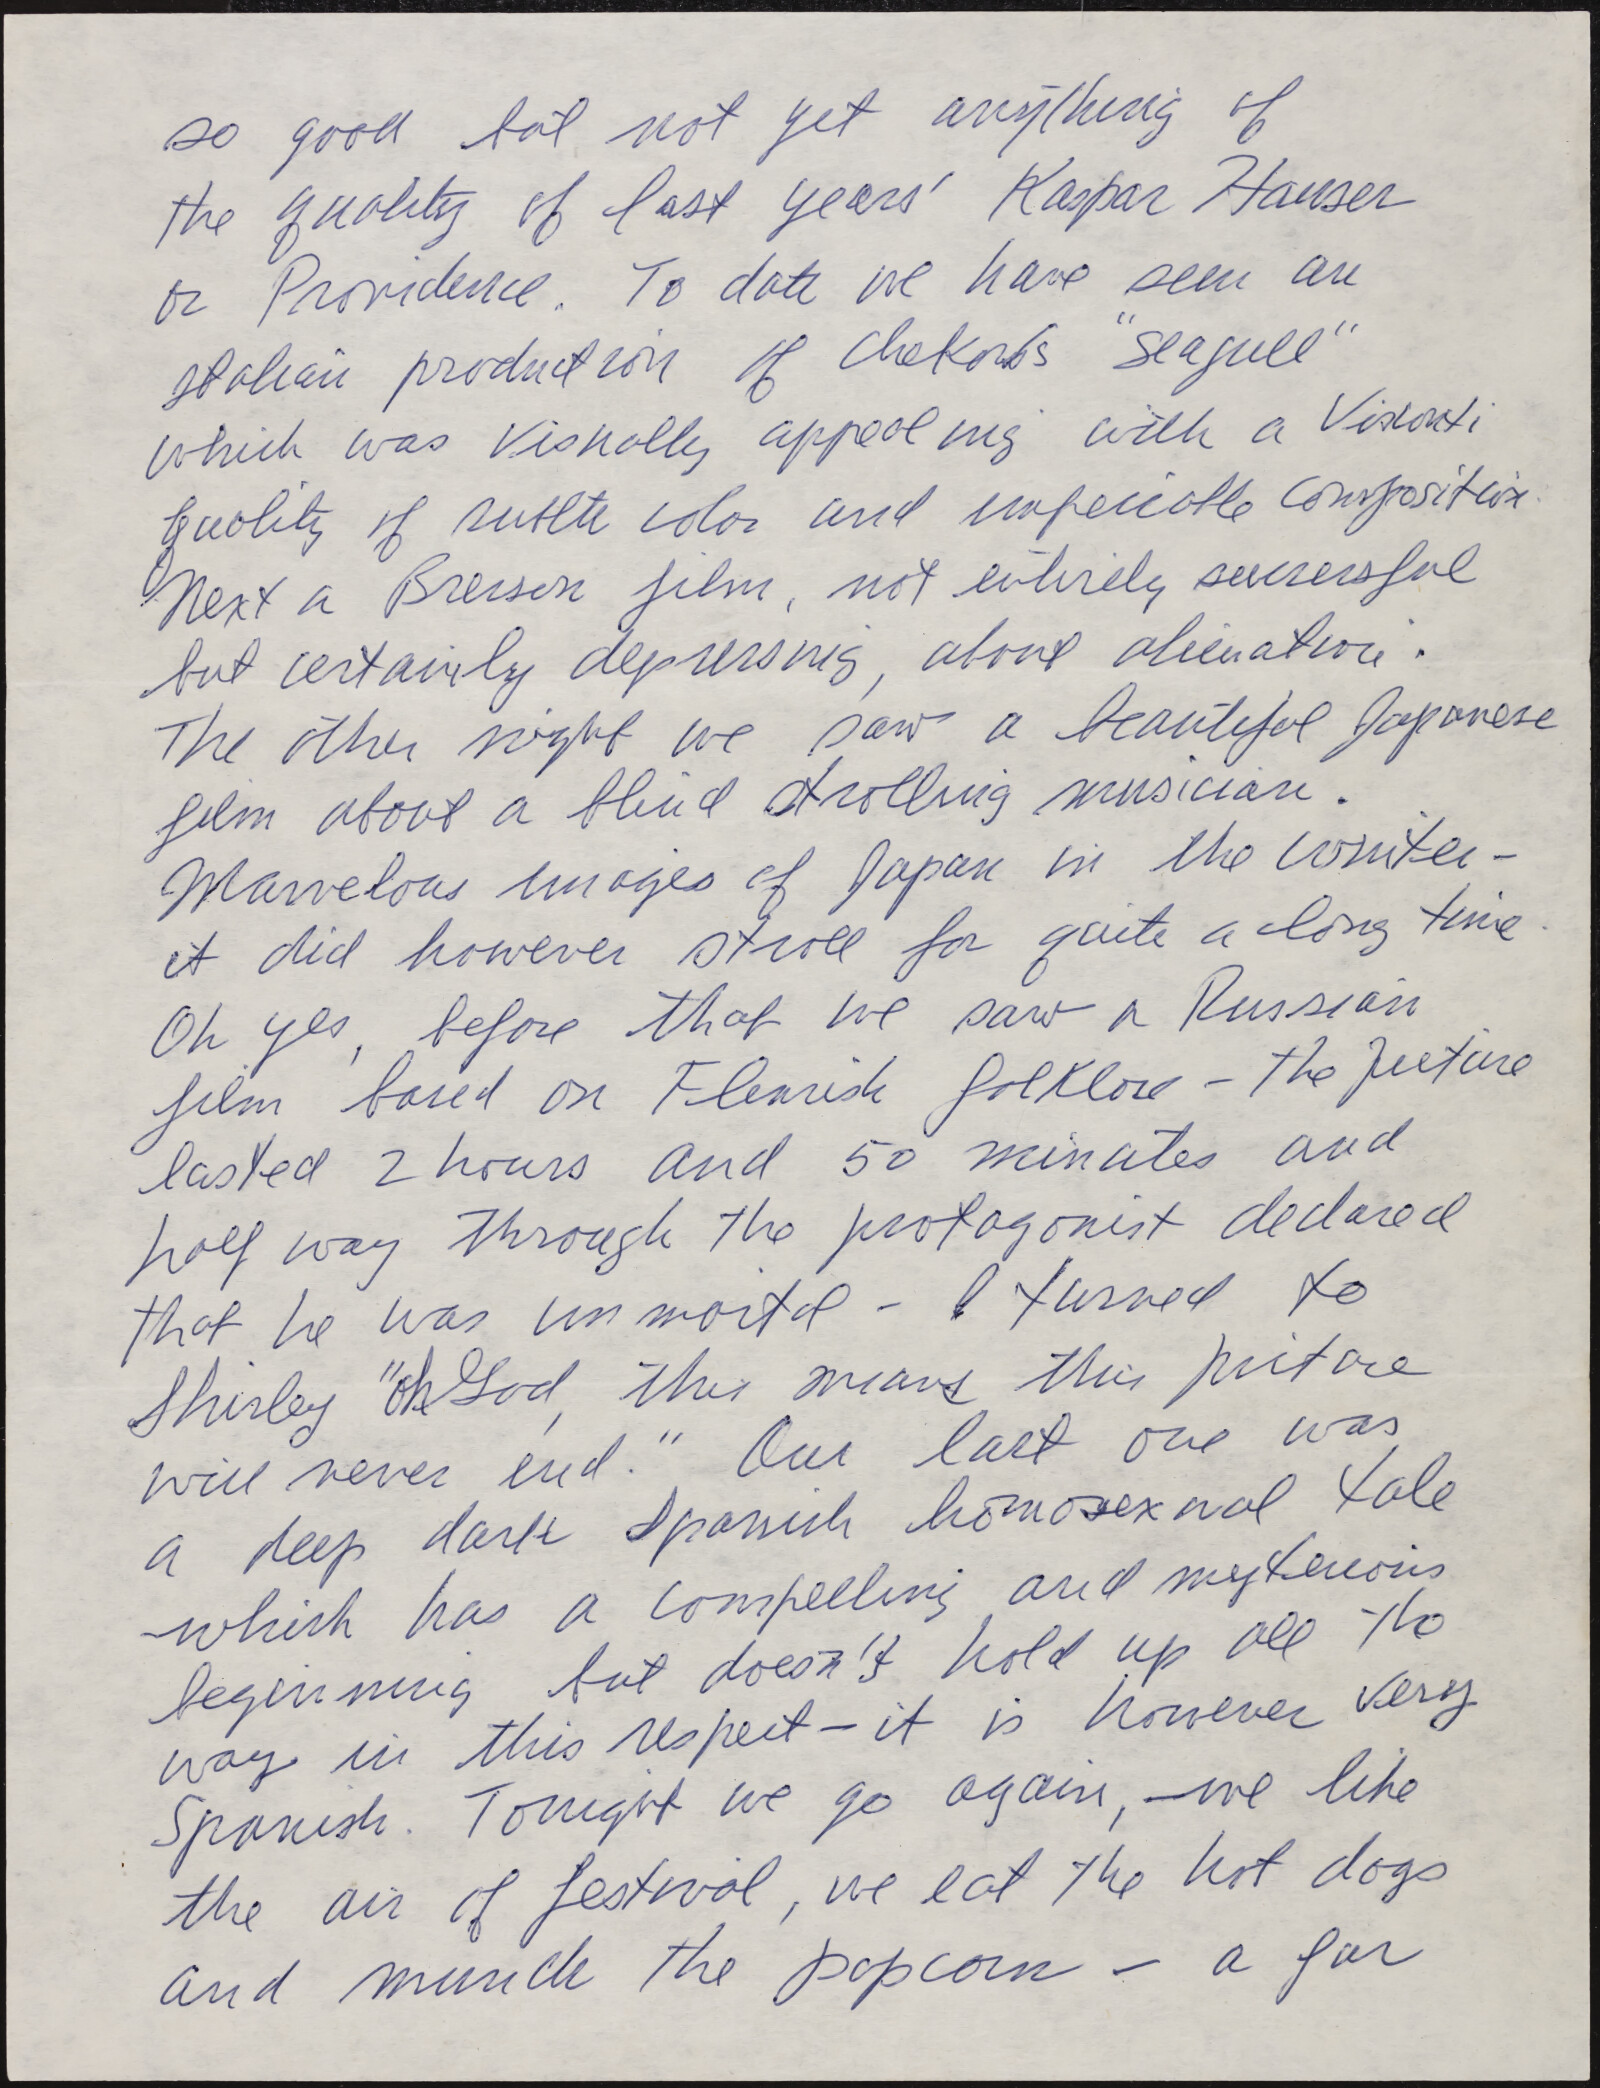 so good but not yet anything of
the quality of last years' Kaspar Hauser
or Providence. To date we have seen an
Italian production of Chekov's "Seagull"
which was visually appealing with a Visconti
quality of subtle color and impeccable composition.
Next a Bresson film, not entirely successful
but certainly depressing, about alienation.
The other night we saw a beautiful Japanese
film about a blind strolling musician.
Marvelous images of Japan in the winter -
it did however stroll for quite a long time.
Oh yes, before that we saw a Russian
film based on Flemish folklore - the picture
lasted 2 hours and 50 minutes and
half way through the protagonist declared
that he was immortal - I turned to
Shirley "oh God, this means this picture
will never end." Our last one was
a deep dark Spanish homosexual tale
which has a compelling and mysterious
beginning but doesn't hold up all the
way in this respect - it is however very
Spanish. Tonight we go again, - we like
the air of festival, we eat the hot dogs
and munch the popcorn - a far